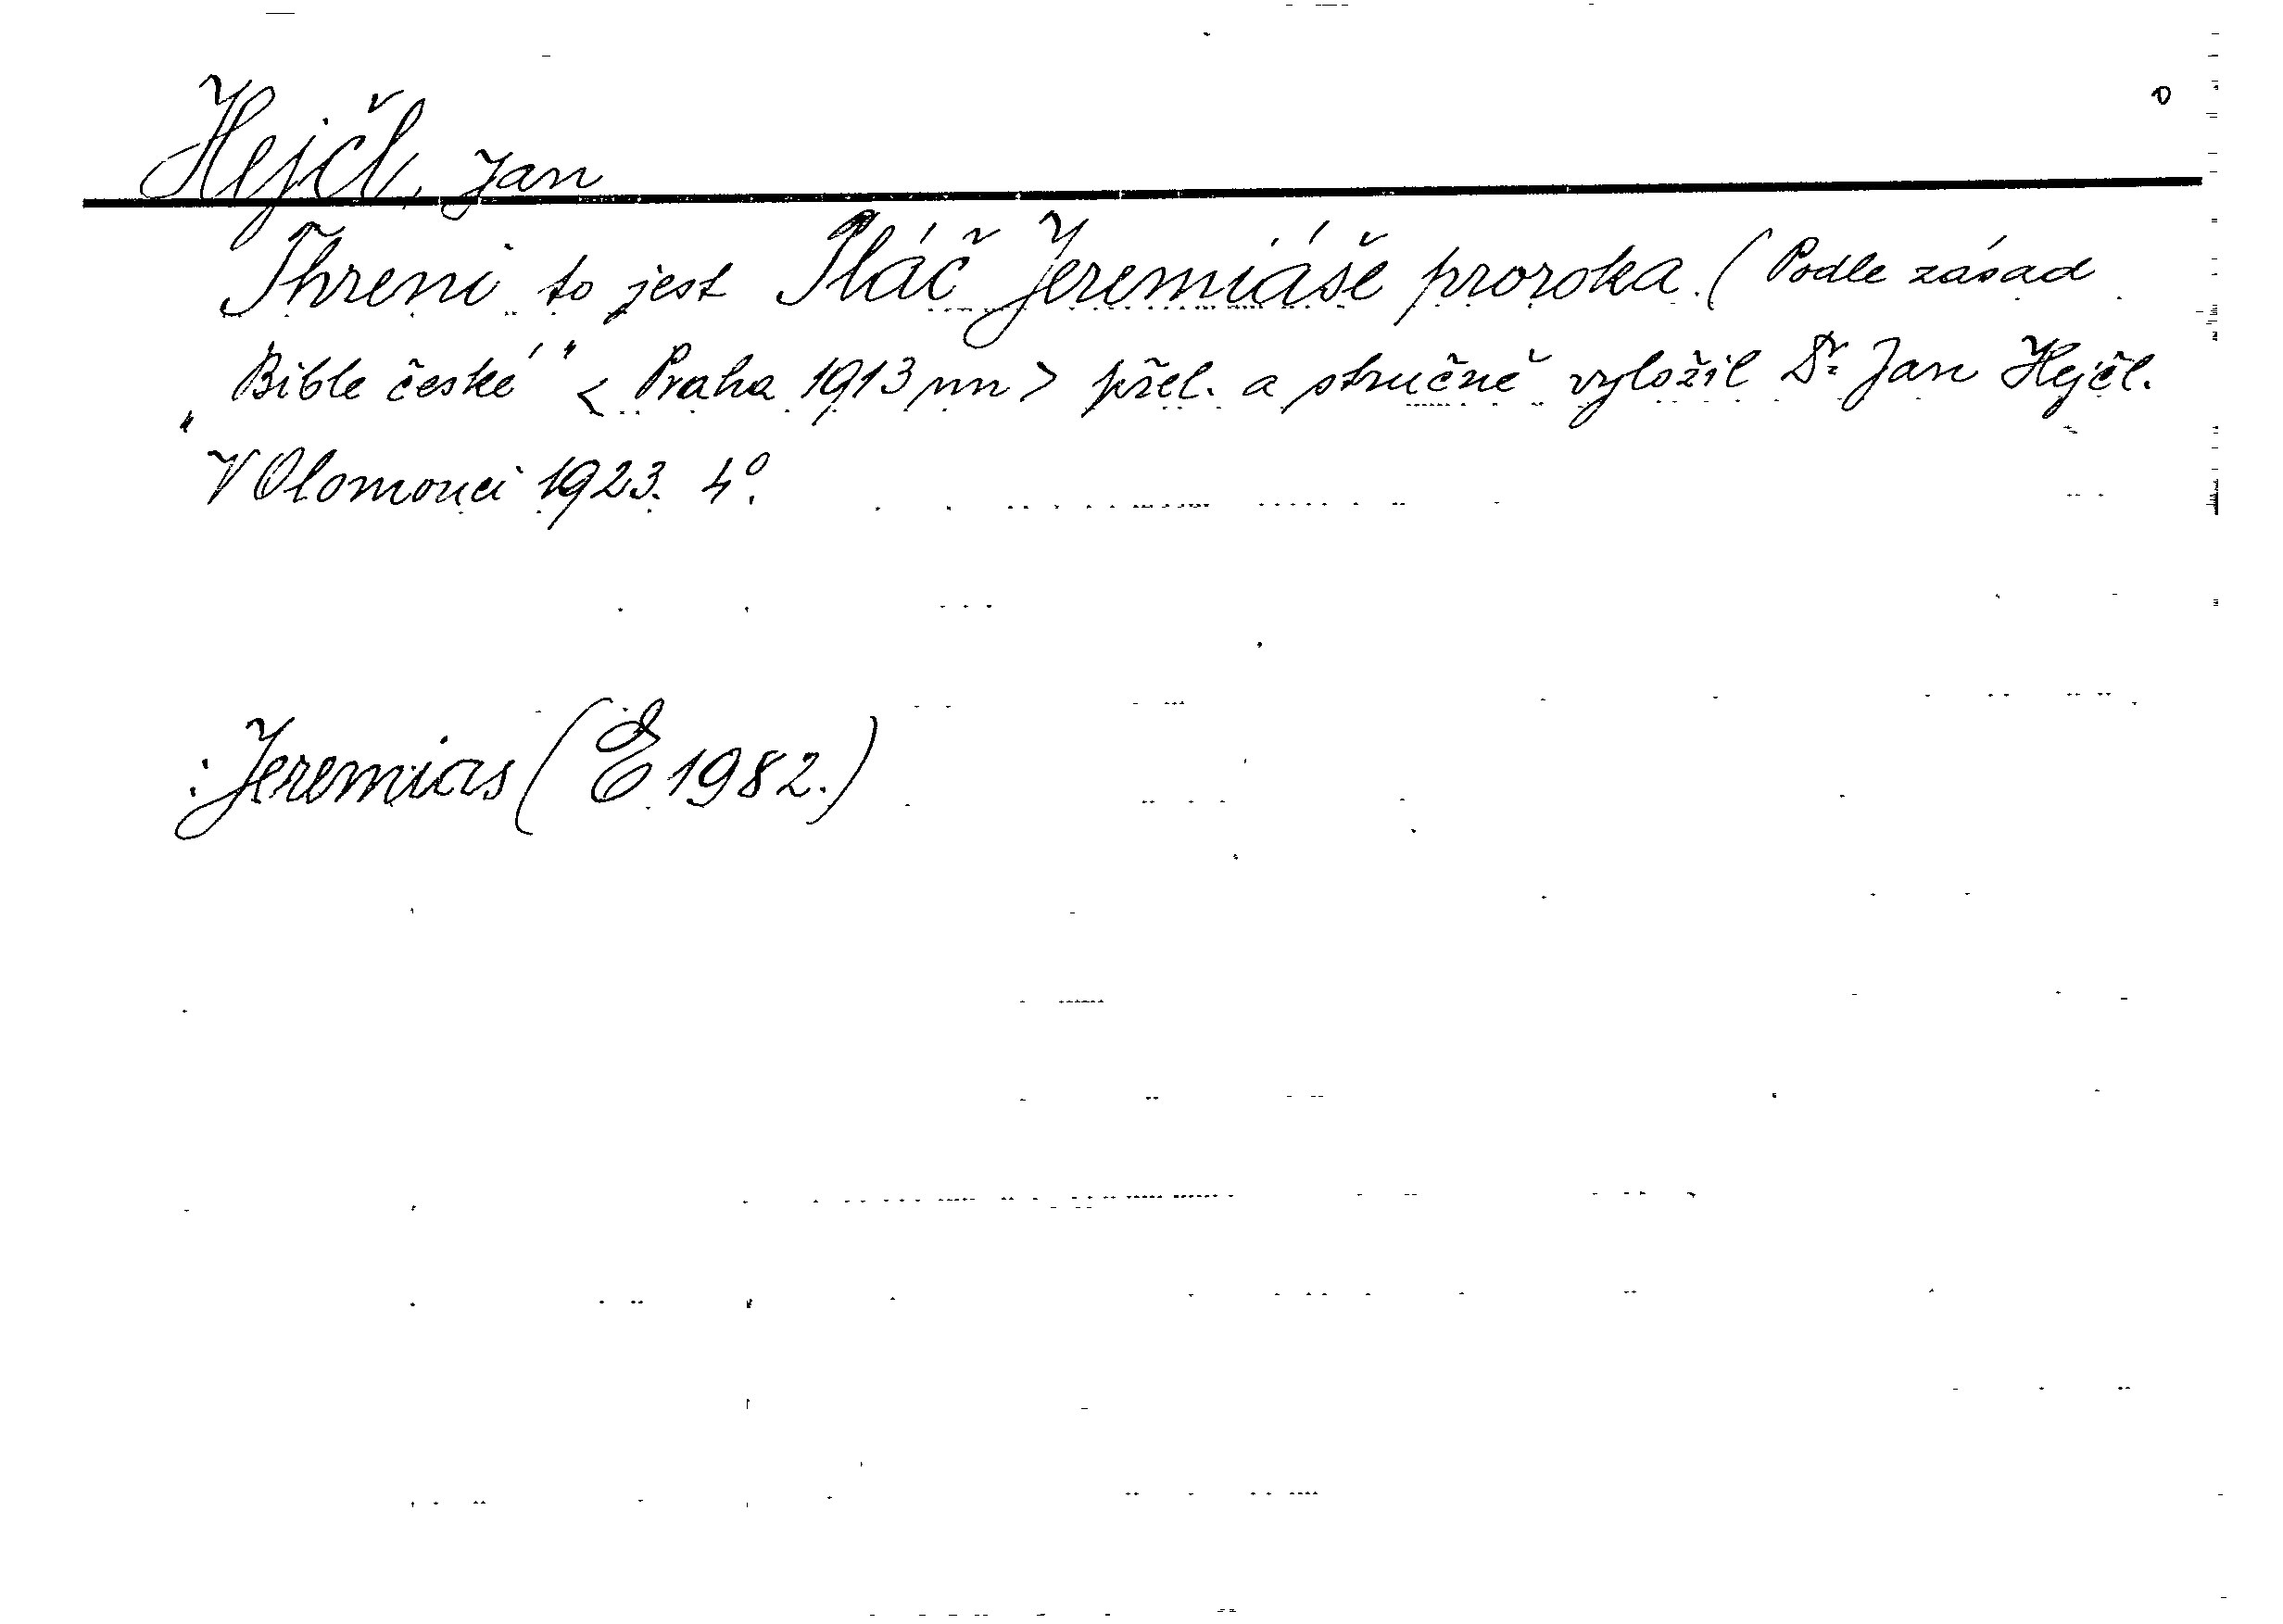 Hejčl, Jan
Threni to jest Pláč Jeremiáše proroka. (Podle zásad
„Bible české“ < Praha 1913 nn > přel. a stručně vyložil Dr. Jan Hejčl.
V Olomouci 1923. 4°.
: Jeremias (E 1982.)